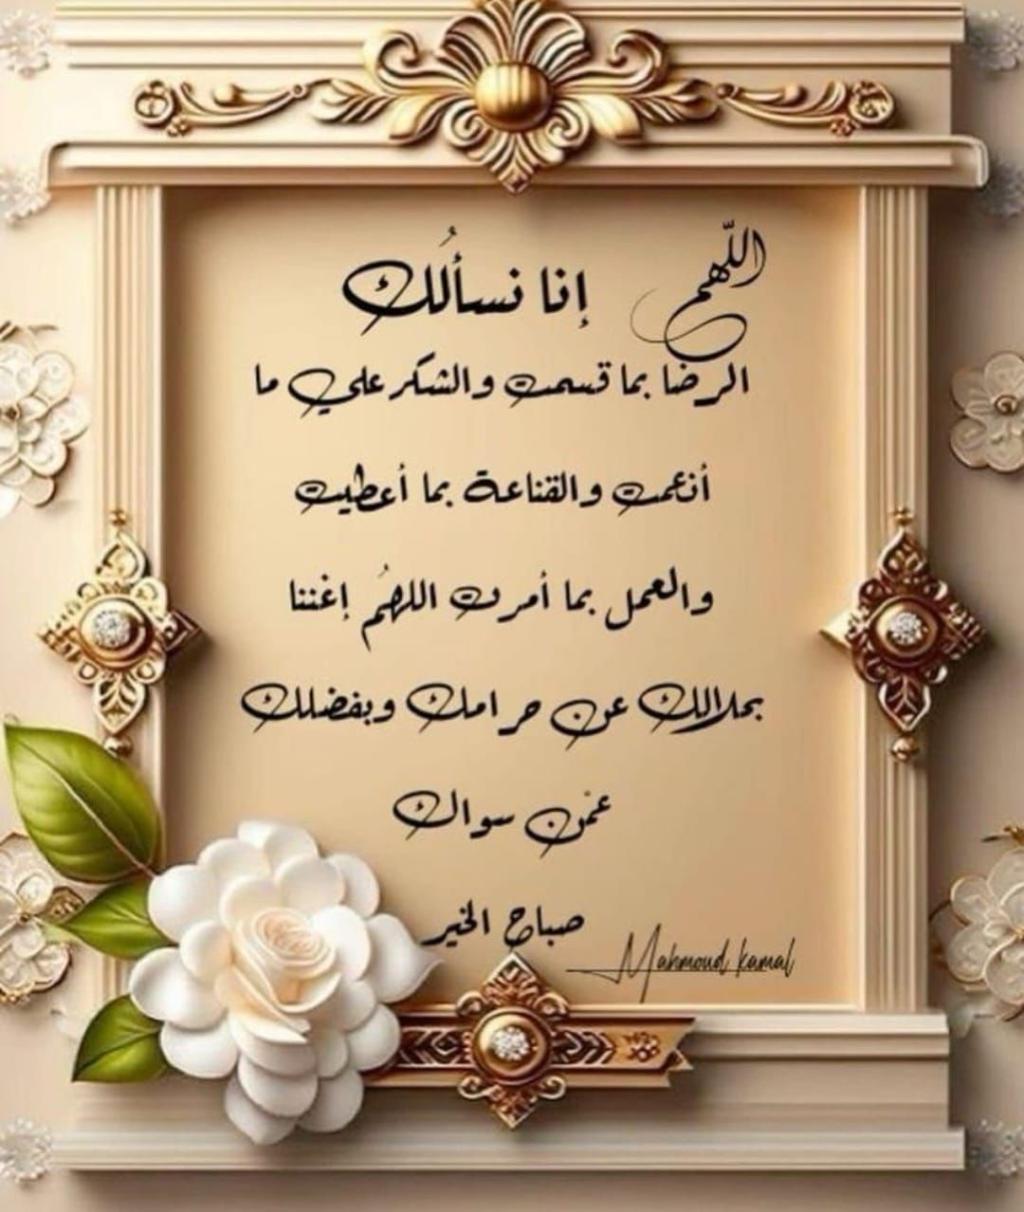 اللّهم إنا نسألُك
الرضا بما قسمت والشكر علي ما
أنعمت والقناعة بما أعطيت
والعمل بما أمرت اللهُم إغننا
بحلالك عن حرامك وبفضلك
عمن سواك
صباح الخير
Mahmoud kamal